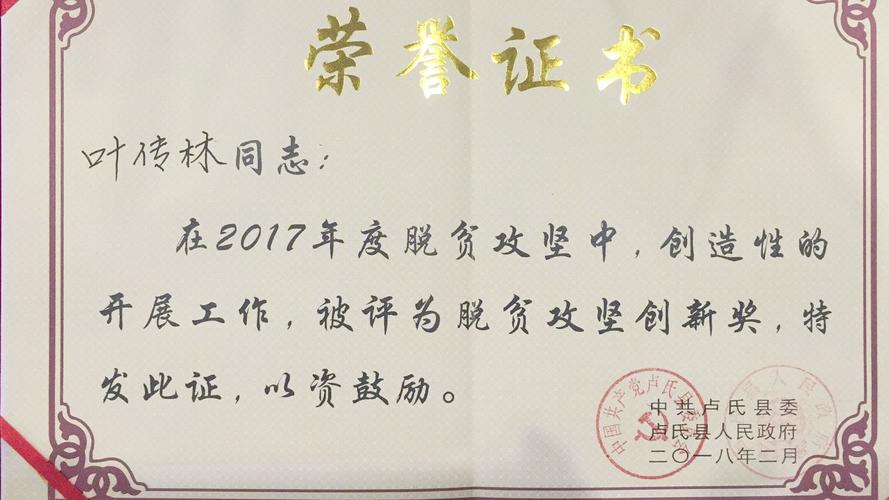 荣誉证书
叶传林同志：
在2017年度脱贫攻坚中，创造性的
开展工作，被评为脱贫攻坚创新奖，特
发此证，以资鼓励。
中共卢氏县委
卢氏县人民政府
二〇一八年二月
中国共产党卢氏县委员会